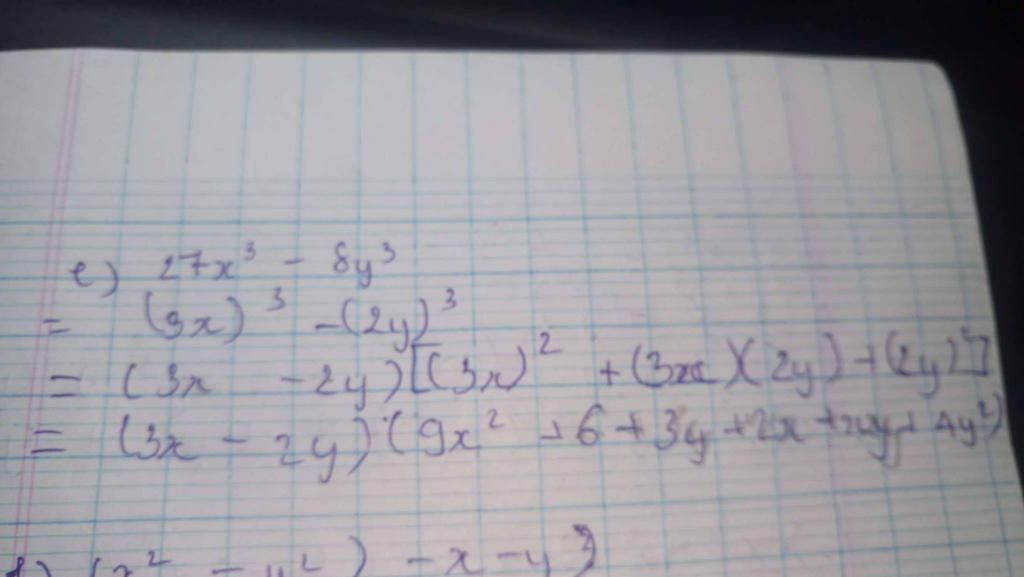 e) 27x³ - 8y³
= (3x)³ - (2y)³
= (3x - 2y)[(3x)² + (3x)(2y) + (2y)²]
= (3x - 2y)(9x² + 6 + 3y + 2x + xy + 4y²)
f) (x² - y²) - x - y